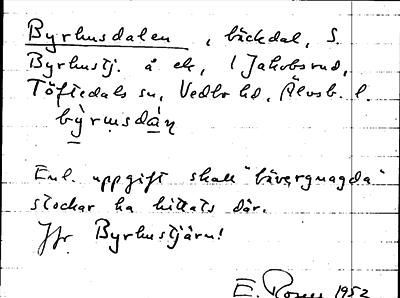 Byrhusdalen, bäckdal, S.
Byrhustj. å ek, 1 Jakobsrud,
Töftedals sn, Vedbo hd, Älvsb. l.
bỳ̱rusdà̱ṇ
Enl. uppgift skall "bävergnagda"
stockar ha hittats där.
Jfr Byrhustjärn!
E. 1952